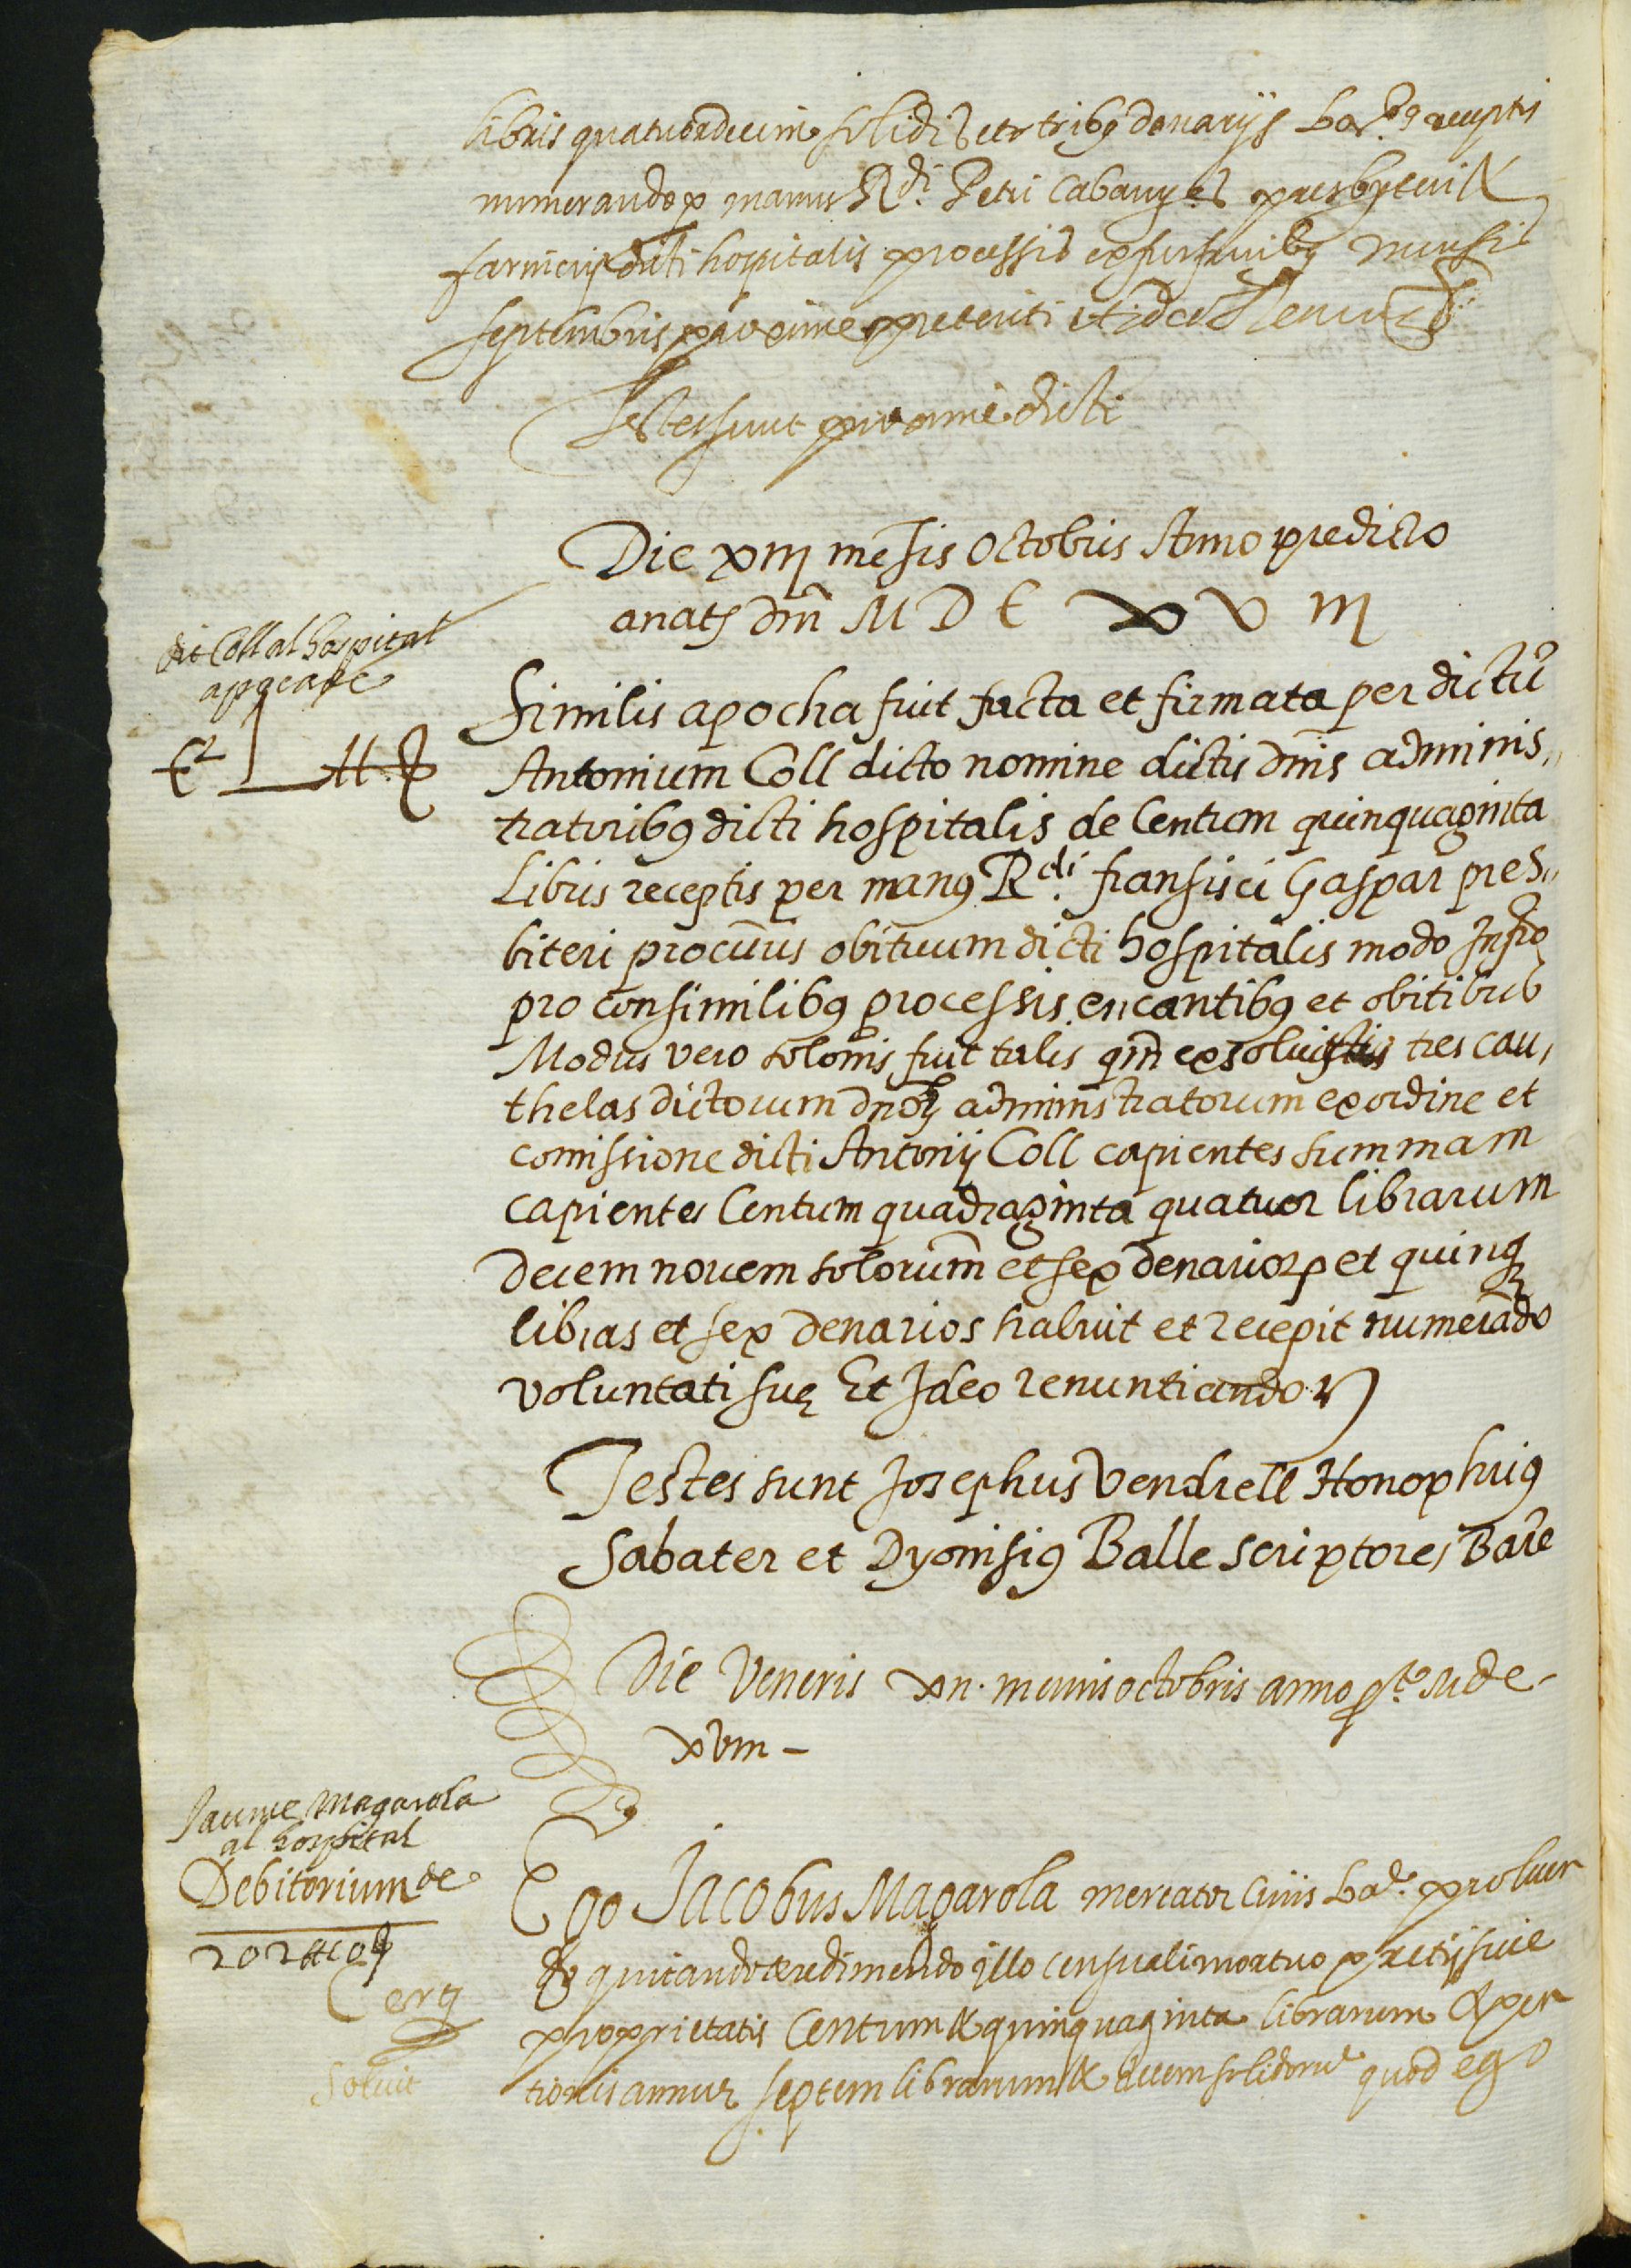 libris quatuordecim solidis et tribus denarijs Bar.e receptis
numerando p manus R.di Petri Cabanyes presbyteri &
farinerij dicti hospitalis processis ex furfuribus mensis
septembris proxime preteriti et ideo Renun
Testes sunt proxime dicti
Die xiij mēsis Octobris Anno predicto
a natē dñi M D C X V iij
dit Coll al hospital
apoca de
Similis apocha fuit facta et firmata per dictū
Antonium Coll dicto nomine dictis dñis adminis,,
tratoribꝰ dicti hospitalis de Centum quinquaginta
Libris receptis per manꝰ R.di fransisci Gaspar pres,,
biteri procuris obituum dicti hospitalis modo
pro consimilibꝰ processis encantibꝰ et obitibus
Modus vero solonis fuit talis qm exsoluistis tres cau,
thelas dictorum dnoꝝ administratorum ex ordine et
comissione dicti Antonij Coll capientes summam
capientes Centum quadraginta quatuor librarum
decem novem solorum et sex denarioꝝ et quinqꝫ
libras et sex denarios habuit et recepit numerādo
voluntati suę Et Ideo renuntiando
Testes sunt Josephus Vendrell Honophriꝰ
Sabater et Dyonisiꝰ Balle scriptores Barē
Die Veneris xij. mensis octobris anno p.to M dc
xviij –
Jaume Magarola
al hospital
Debitorium de
Ego Jacobus Magarola mercator civis Bar.e pro luen
do quitando & redimendo illo censuali mortuo pretij sive
proprietatis Centum & quinquaginta librarum & pen
tionis annuę septem librarum & decem solidorū quod ego
solvit